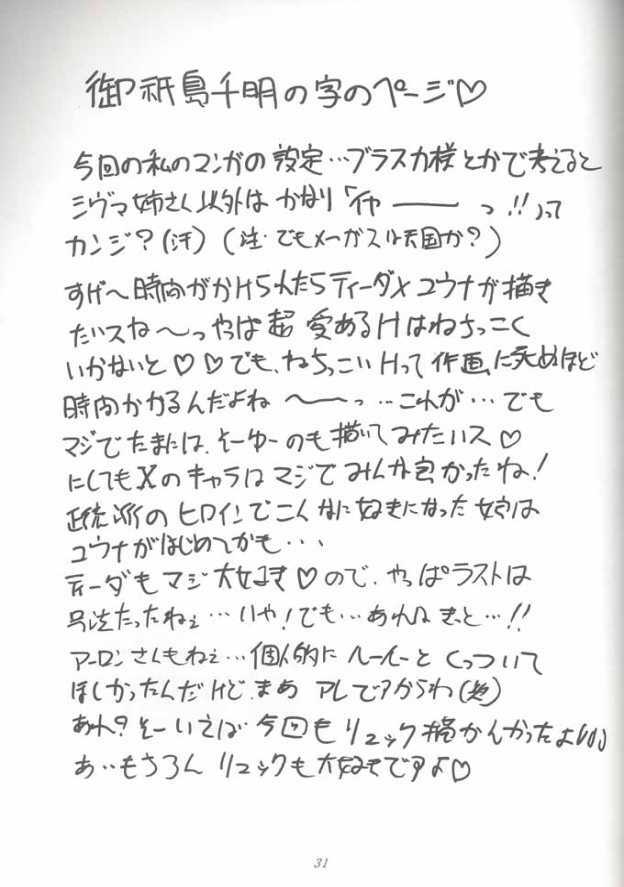 御祇島千明の字のページ♡
今回の私のマンガの設定…ブラスカ様とかで考えると
シヴァ姉さん以外はかなり「イヤーーっ!!」って
カンジ?(汗)(注・でもメーガスは天国か?)
すげ〜時間がかけられたらティーダ×ユウナが描き
たいスね〜っやっぱ超愛あるHはねちっこく
いかないと♡♡でも、ねちっこいHって作画に死ぬほど
時間かかるんだよね〜ーっ…これが…でも
マジでたまには、そーゆーのも描いてみたいス♡
にしてもXのキャラはマジでみんな良かったね!
正統派のヒロインでこんなに好きになった娘は
ユウナがはじめてかも・・・
ティーダもマジ大好き♡ので、やっぱラストは
号泣だったねぇ…いや!でも…あれはきっと…!!
アーロンさんもねぇ…個人的にルールーとくっついて
ほしかったんだけど、まぁアレですからね
あれ?そーいえば今回もリュック描かんかったよ
あ…もちろんリュックも大好きですよ♡
31